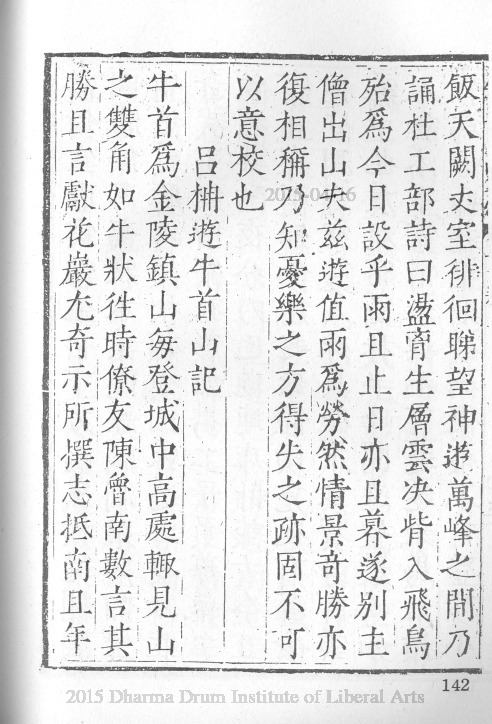 飯天闕丈室徘徊睇望神遊萬峰之間乃
誦杜工部詩曰盪胷生層雲決眥入飛鳥
殆爲今日設乎雨且止日亦且暮遂别主
僧出山夫茲遊值雨爲勞然情景奇勝亦
復相稱乃知憂樂之方得失之跡固不可
以意校也
吕柟遊牛首山記
牛首爲金陵鎮山每登城中高處輙見山
之雙角如牛狀徃時僚友陳魯南數言其
勝且言獻花巖尤奇示所撰志抵南且年
142
2015 Dharma Drum Institute of Liberal Arts